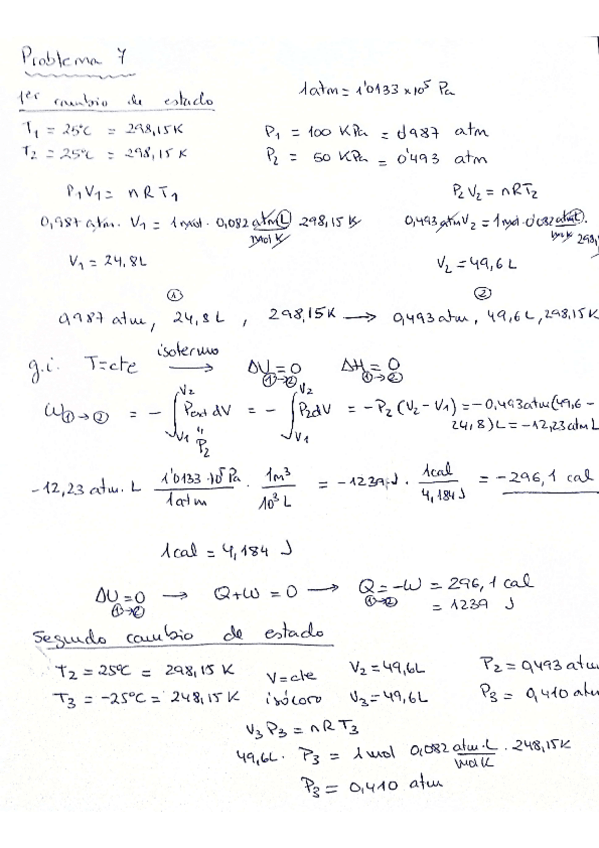 Problema 7
1er cambio de estado
1atm = 1'0133 × 10⁵ Pa
T₁ = 25ºC = 298,15K P₁ = 100 KPa = 0'987 atm
T₂ = 25ºC = 298,15K P₂ = 50 KPa = 0'493 atm
P₁V₁ = nRT₁ P₂V₂ = nRT₂
0,987 atm · V₁ = 1mol · 0,082 atm L / mol K 298,15K 0,493 atm V₂ = 1mol · 0'082 atm L / mol K · 298,
V₁ = 24,8L V₂ = 49,6 L
① ②
0,987 atm, 24,8 L, 298,15K → 0,493 atm, 49,6 L, 298,15K
g.i. T=cte isotermo → ΔU = 0 ①→② ΔH = 0 ①→②
W①→② = - ∫V₁V₂ Pext dV = - ∫V₁V₂ P₂dV = -P₂ (V₂ - V₁) = -0,493atm (49,6 -
" P₂ 24,8) L = -12,23 atm L
-12,23 atm · L 1'0133 · 10⁵ Pa / 1atm · 1m³ / 10³ L = -1239 J · 1cal / 4,184 J = -296,1 cal
1cal = 4,184 J
ΔU = 0 ①→② → Q+W = 0 → Q ①→② = -W = 296,1 cal
= 1239 J
Segundo cambio de estado
T₂ = 25ºC = 298,15 K V=cte V₂ = 49,6L P₂ = 0,493 atm
T₃ = -25ºC = 248,15 K isócoro V₃ = 49,6L P₃ = 0,410 atm
V₃ P₃ = nRT₃
49,6L · P₃ = 1 mol 0,082 atm·L / mol K · 248,15K
P₃ = 0,410 atm